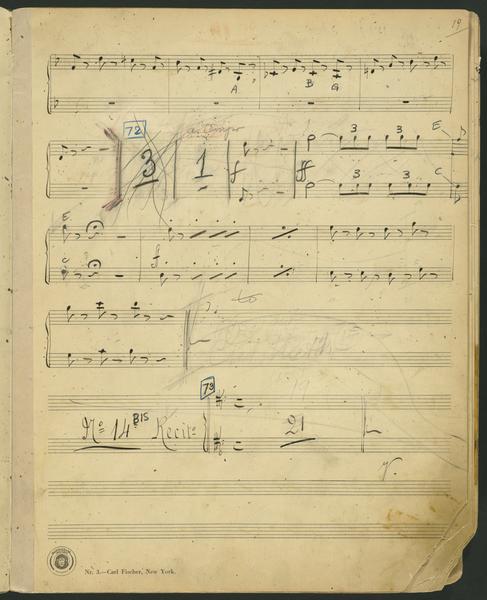 19
A B G
72 a tempo
3 3 E
3 1 f ff
3 3 C
E
C f
to
73
No 14 BIS Recit. 21
V.
Nr. 3.—Carl Fischer, New York.